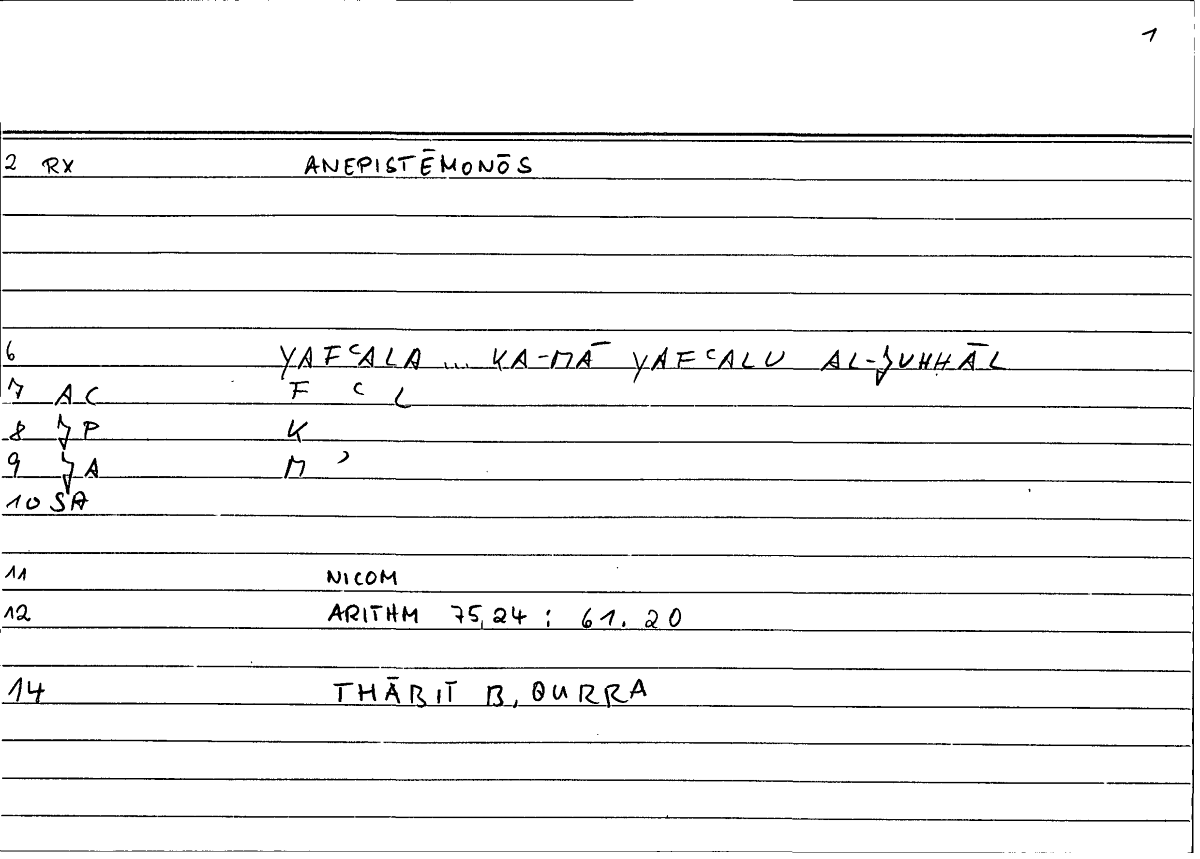 1
2 RX ANEPISTĒMONŌS
6 YAFᶜALA ... KA-MĀ YAFᶜALU AL-JUHHĀL
7 AC F ᶜ L
8 JP K
9 JA M ʾ
10 SA
11 NICOM
12 ARITHM 75,24 : 61.20
14 THĀBIT B. QURRA